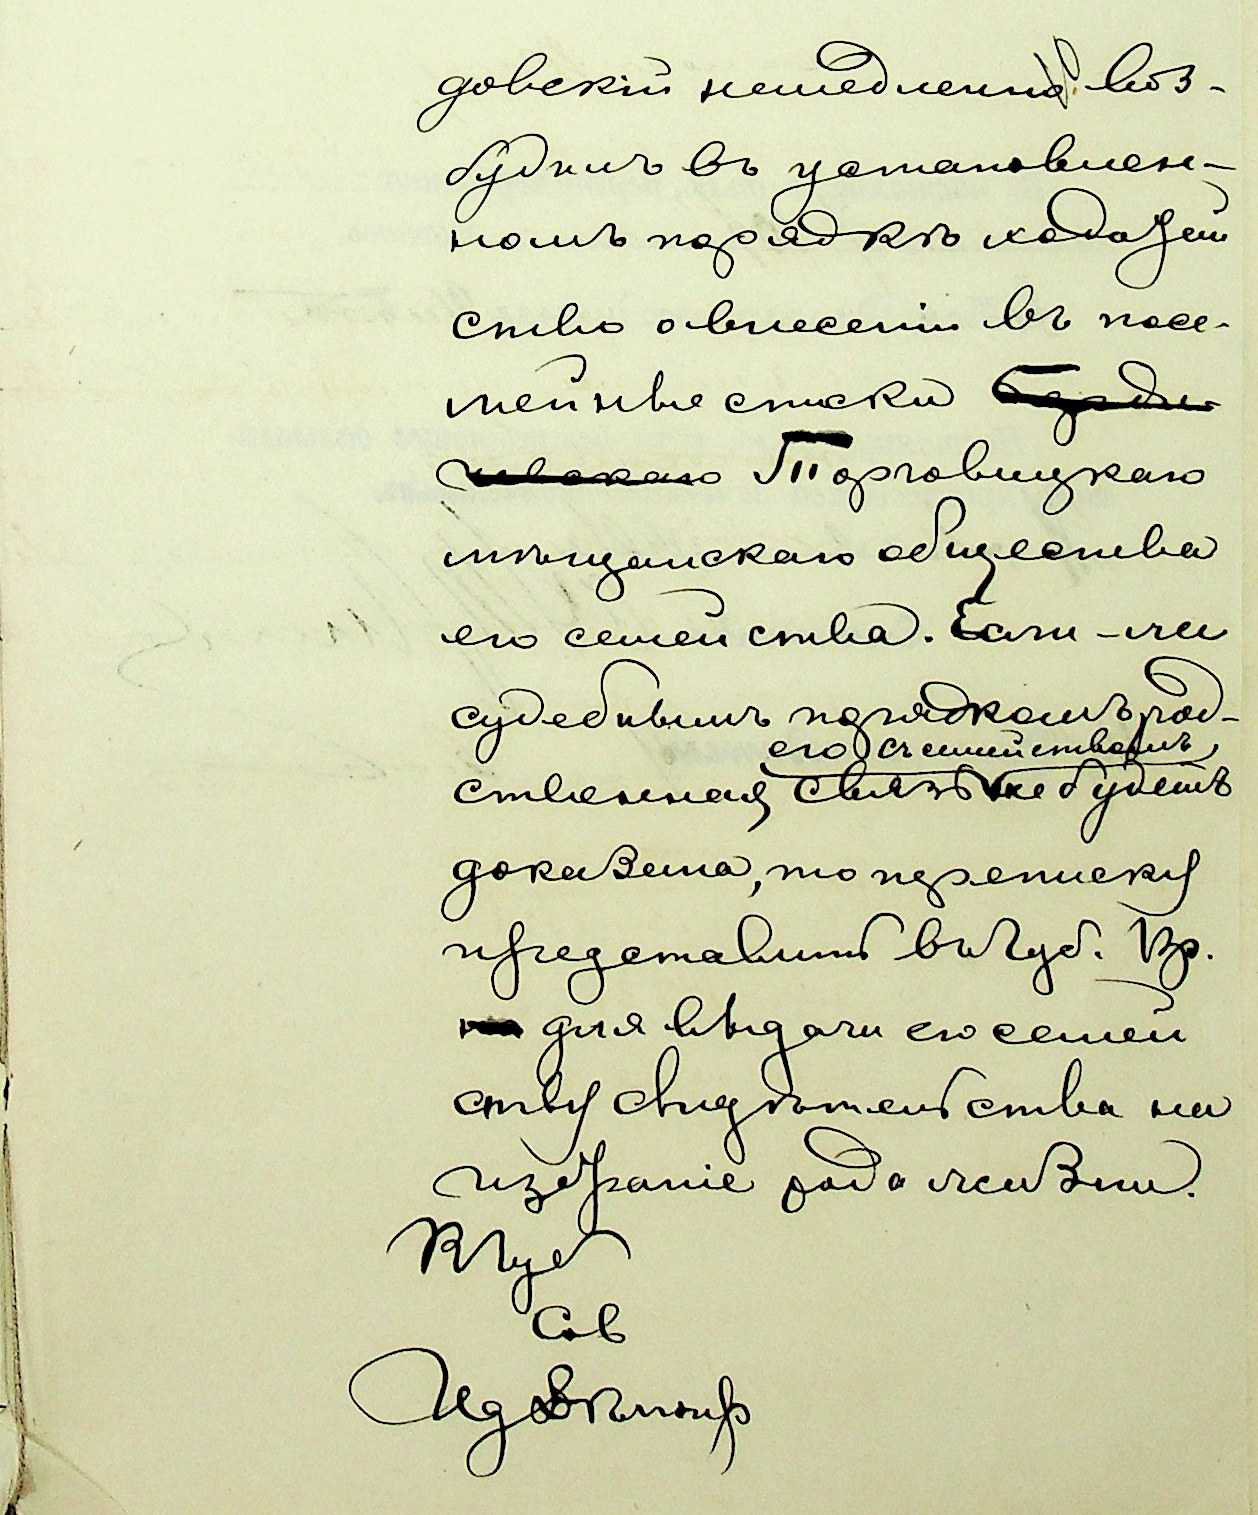 довскій немедленно воз-
будилъ въ установлен-
номъ порядкѣ ходатай
ство о внесеніи въ посе-
мейные списки Бердо-
Торговицкаго
мѣщанскаго общества
его семейства. Если-же
судебнымъ порядкомъ род-
его съ семействомъ
ственная связь не будетъ
доказана, то переписку
представить въ Губ. Пр.
для выдачи его семей
ству свидѣтельства на
избраніе рода жизни.
Губ
Сов